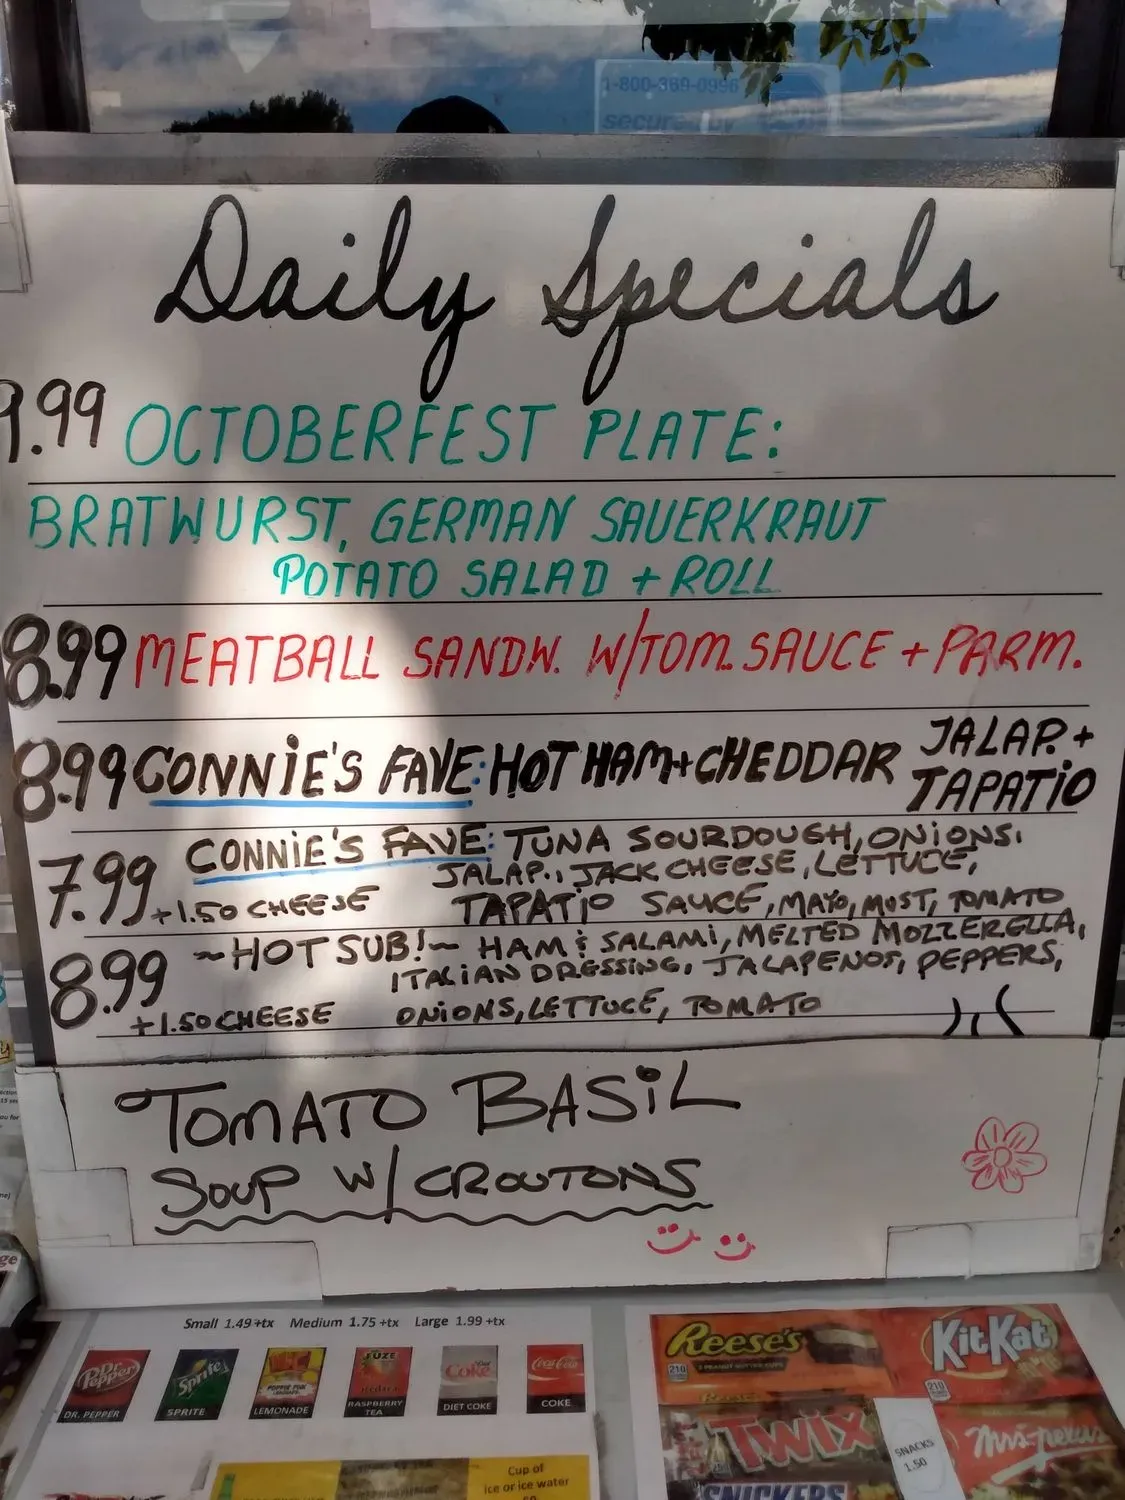 1-800-369-0996
secured by
Daily Specials
9.99 OCTOBERFEST PLATE:
BRATWURST, GERMAN SAUERKRAUT
POTATO SALAD + ROLL
8.99 MEATBALL SANDW. W/TOM. SAUCE + PARM.
8.99 CONNIE'S FAVE: HOT HAM + CHEDDAR JALAP. +
TAPATIO
7.99 CONNIE'S FAVE: TUNA SOURDOUGH, ONIONS,
JALAP., JACK CHEESE, LETTUCE,
+1.50 CHEESE TAPATIO SAUCE, MAYO, MUST, TOMATO
8.99 ~HOT SUB!~ HAM & SALAMI, MELTED MOZZERELLA,
ITALIAN DRESSING, JALAPENOS, PEPPERS,
+1.50 CHEESE ONIONS, LETTUCE, TOMATO
TOMATO BASIL
SOUP W/ CROUTONS
Small 1.49 +tx Medium 1.75 +tx Large 1.99 +tx
Dr Pepper
Sprite
Diet Coke
Coca-Cola
DR. PEPPER
SPRITE
LEMONADE
RASPBERRY
TEA
DIET COKE
COKE
Cup of
ice or ice water
Reese's
2 PEANUT BUTTER CUPS
210
KitKat
210
TWIX
SNACKS
1.50
SNICKERS